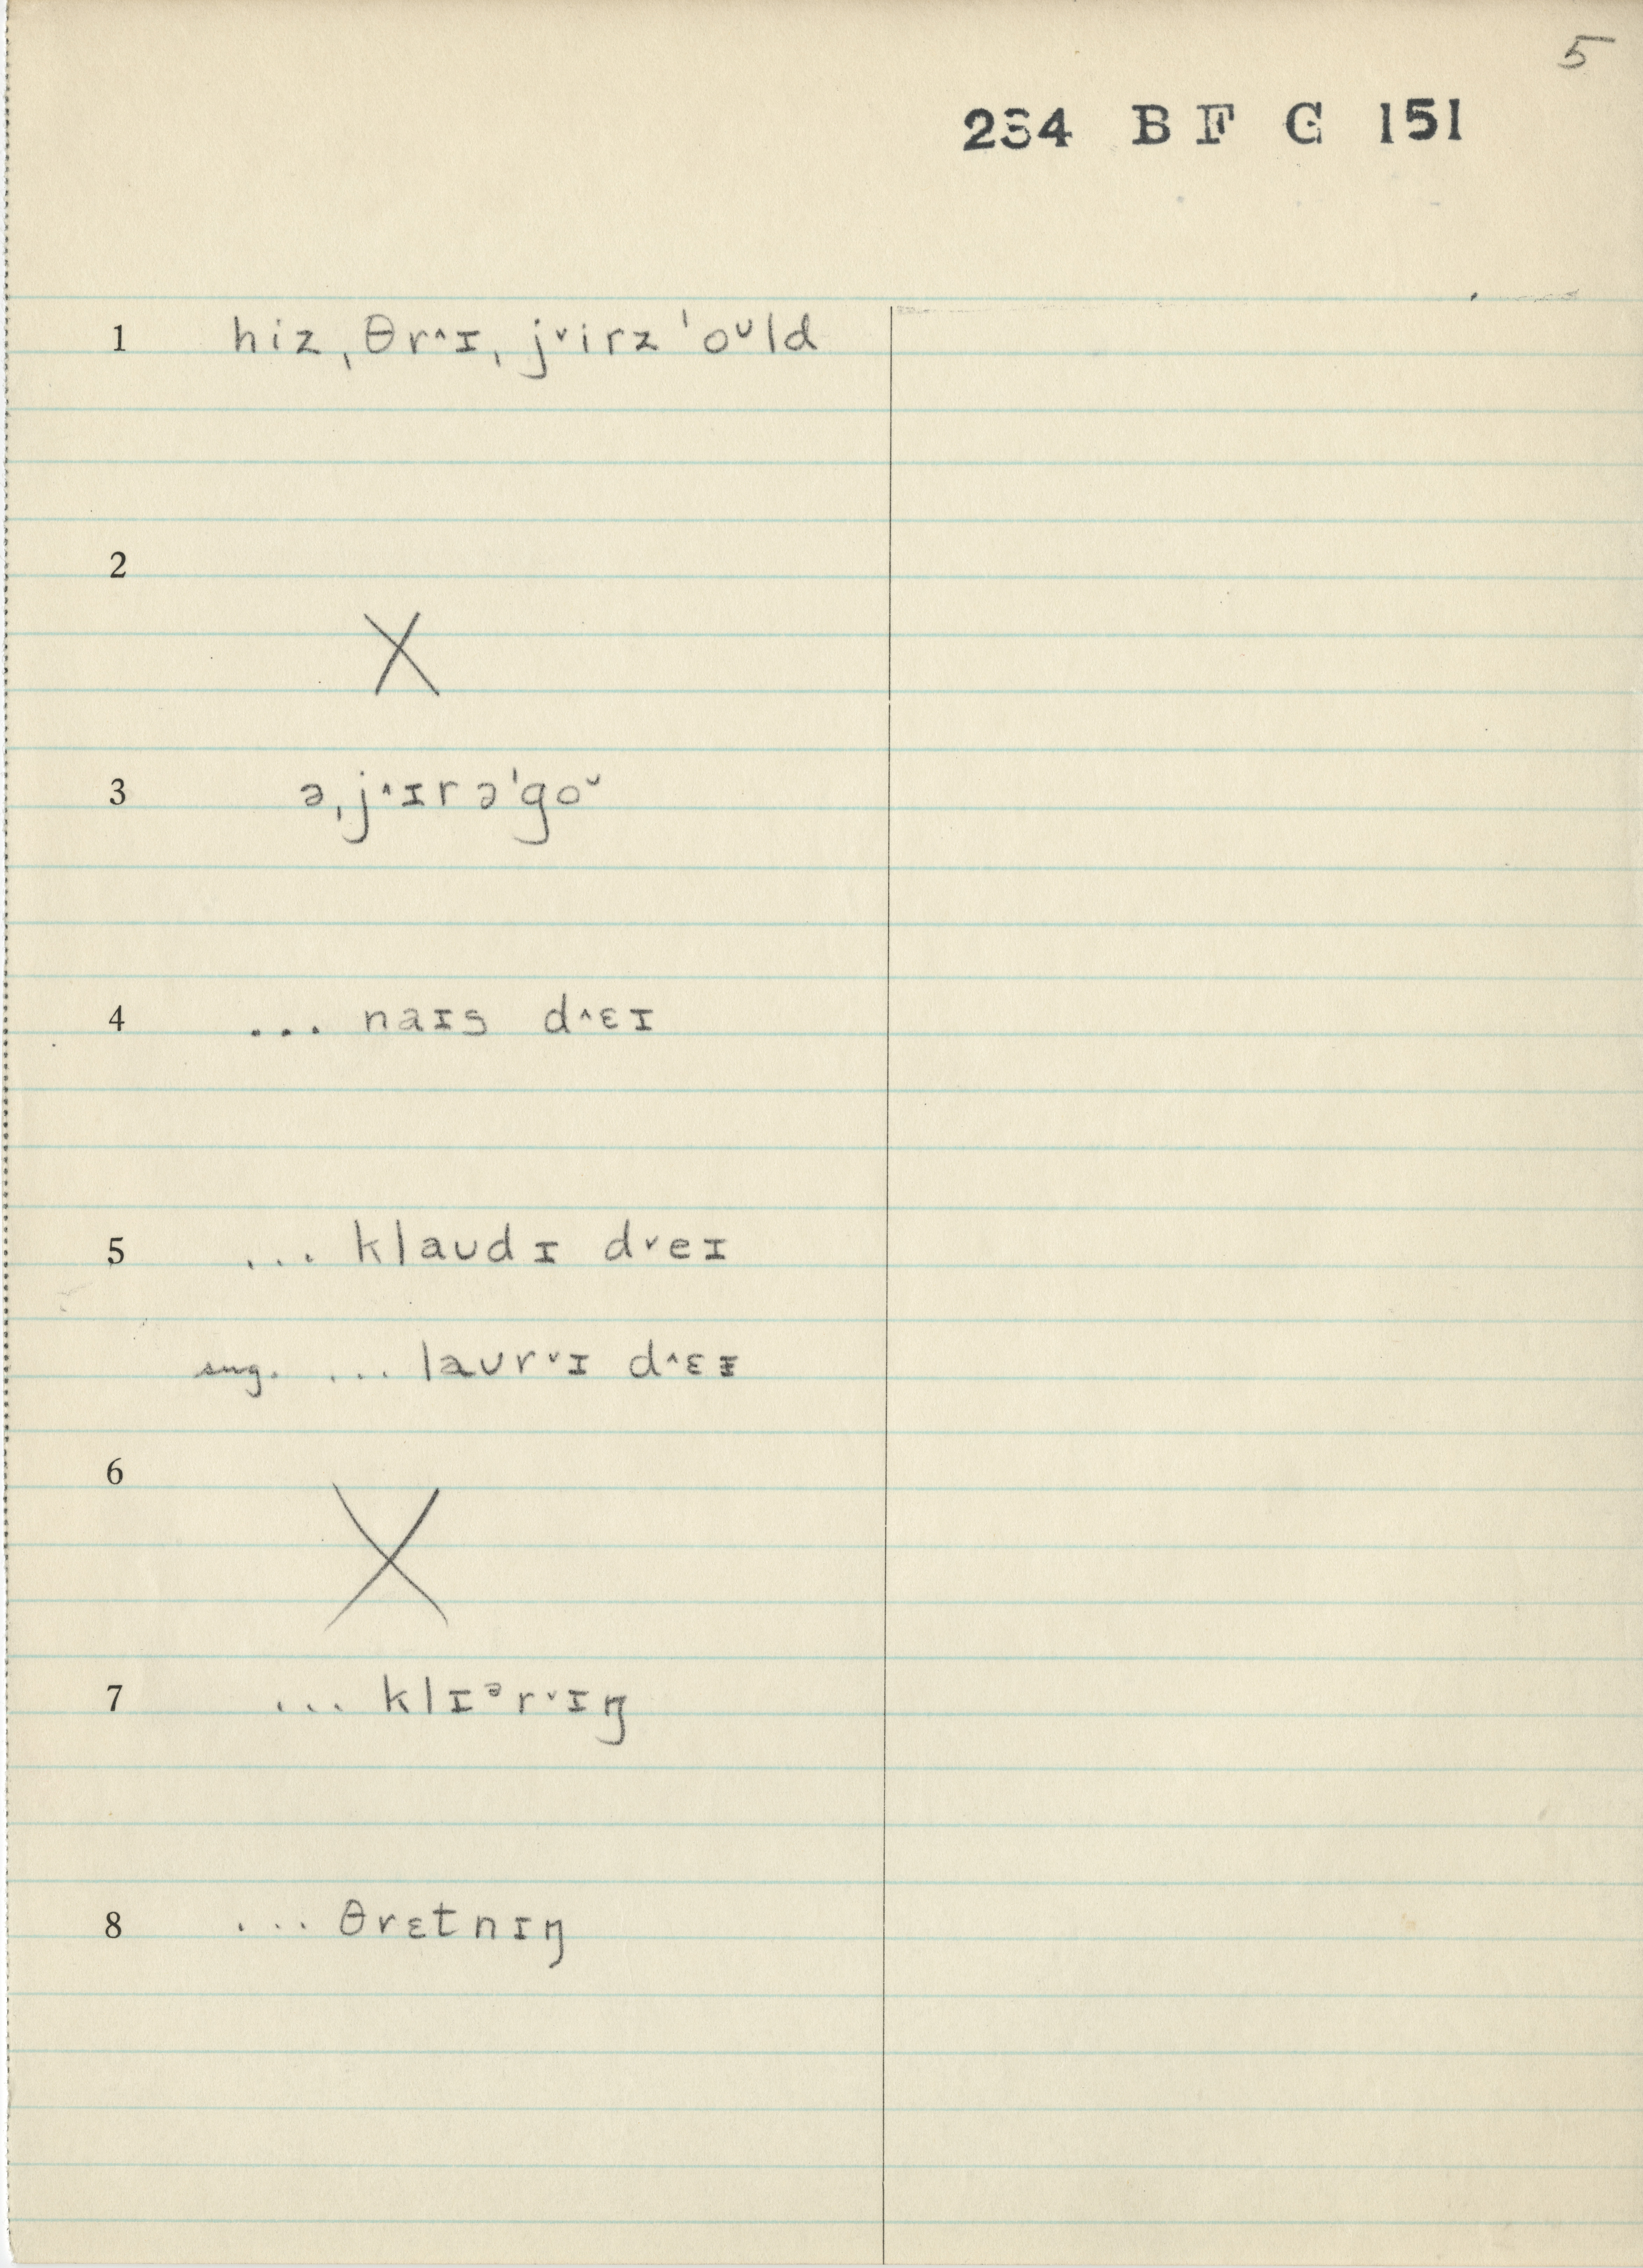 5
234 B F G 151
1 hiz ˌθr˄ɪ ˌj˅irz ˈoᴜld
2 X
3 əˌj˄ɪrəˈgoᵕ
4 ... naɪs d˄ɛɪ
5 ... klaᴜdɪ d˅eɪ
sug. ... laᴜr˅ɪ d˄ɛɪ
6 X
7 ... klɪᵊr˅ɪŋ
8 ... θrɛtnɪŋ